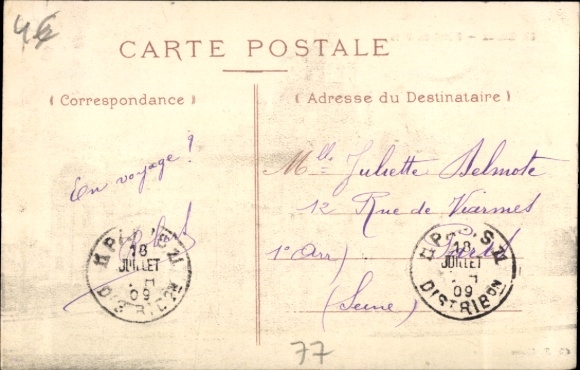 CARTE POSTALE
(Correspondance)
(Adresse du Destinataire)
En voyage !
Mlle Juliette Belmote
12 Rue de Viarmes
Paris
1er Arr)
(Seine)
PARIS
18
JUILLET
09
DISTRIBON
PARIS
18
JUILLET
09
DISTRIBON
77